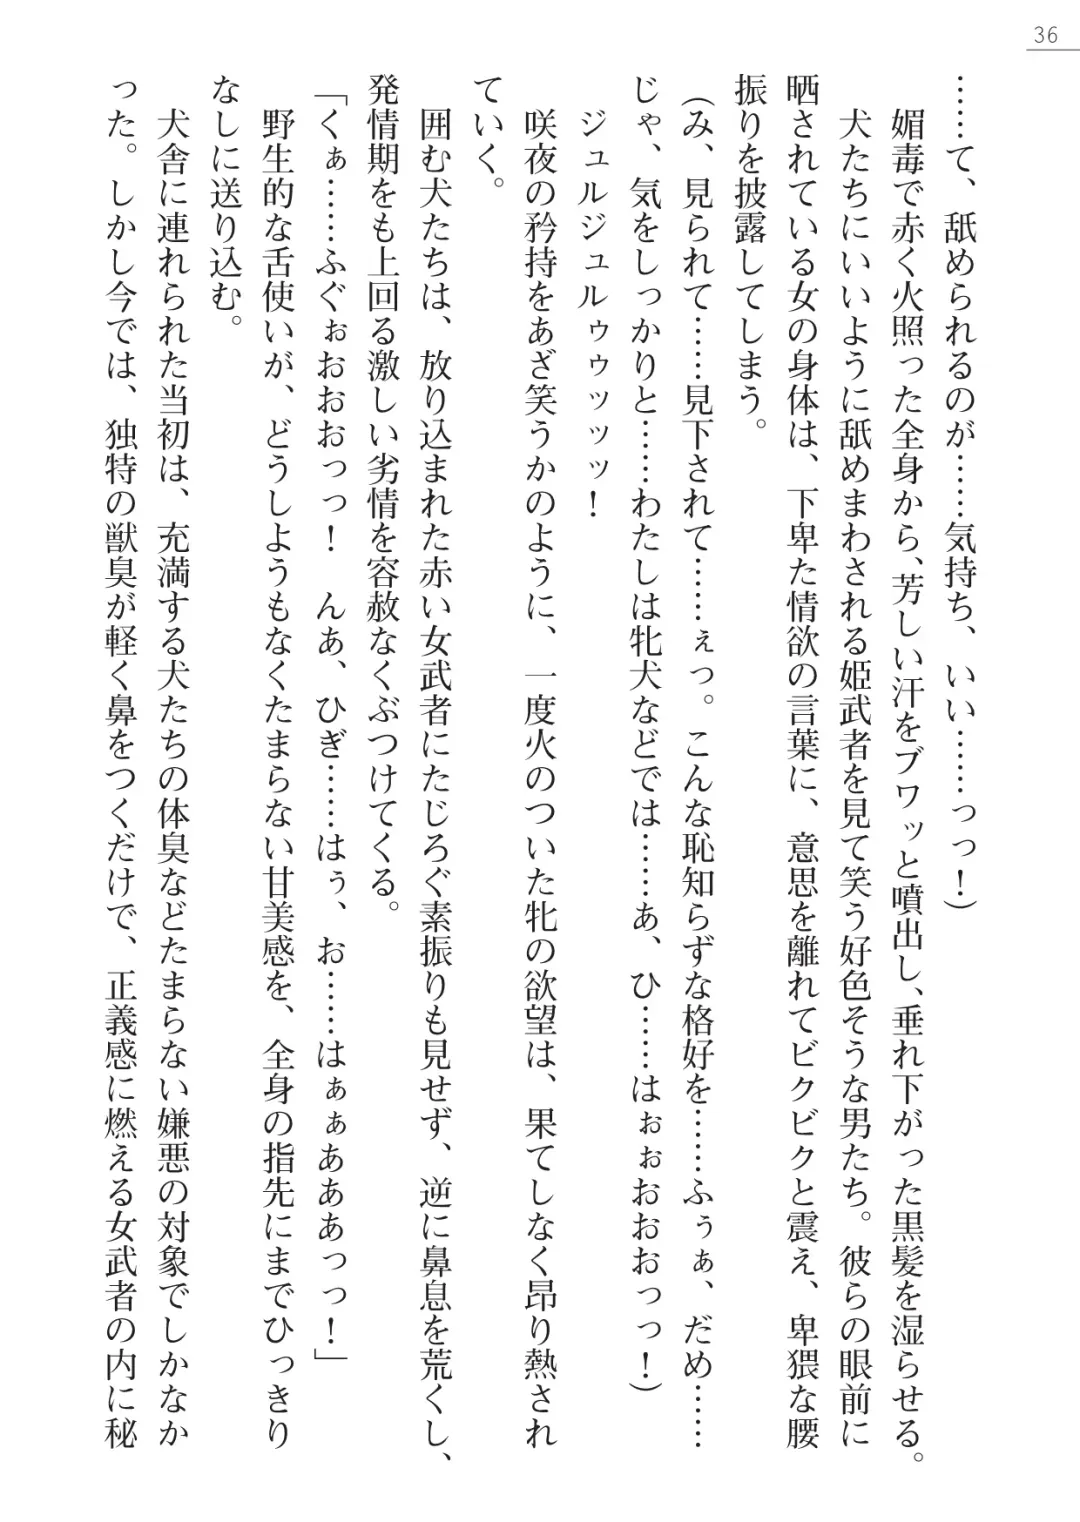 36
……て、舐められるのが……気持ち、いい……っっ！）
媚毒で赤く火照った全身から、芳しい汗をブワッと噴出し、垂れ下がった黒髪を湿らせる。
犬たちにいいように舐めまわされる姫武者を見て笑う好色そうな男たち。彼らの眼前に
晒されている女の身体は、下卑た情欲の言葉に、意思を離れてビクビクと震え、卑猥な腰
振りを披露してしまう。
（み、見られて……見下されて……ぇっ。こんな恥知らずな格好を……ふぅぁ、だめ……
じゃ、気をしっかりと……わたしは牝犬などでは……あ、ひ……はぉぉおおおっっ！）
ジュルジュルゥゥッッッ！
咲夜の矜持をあざ笑うかのように、一度火のついた牝の欲望は、果てしなく昂り熱され
ていく。
囲む犬たちは、放り込まれた赤い女武者にたじろぐ素振りも見せず、逆に鼻息を荒くし、
発情期をも上回る激しい劣情を容赦なくぶつけてくる。
「くぁ……ふぐぉおおおっっ！　んあ、ひぎ……はぅ、お……はぁぁあああっっ！」
野生的な舌使いが、どうしようもなくたまらない甘美感を、全身の指先にまでひっきり
なしに送り込む。
犬舎に連れられた当初は、充満する犬たちの体臭などたまらない嫌悪の対象でしかなか
った。しかし今では、独特の獣臭が軽く鼻をつくだけで、正義感に燃える女武者の内に秘